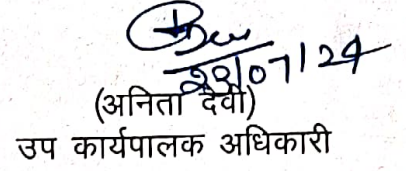 /07/24
(अनिता देवी)
उप कार्यपालक अधिकारी